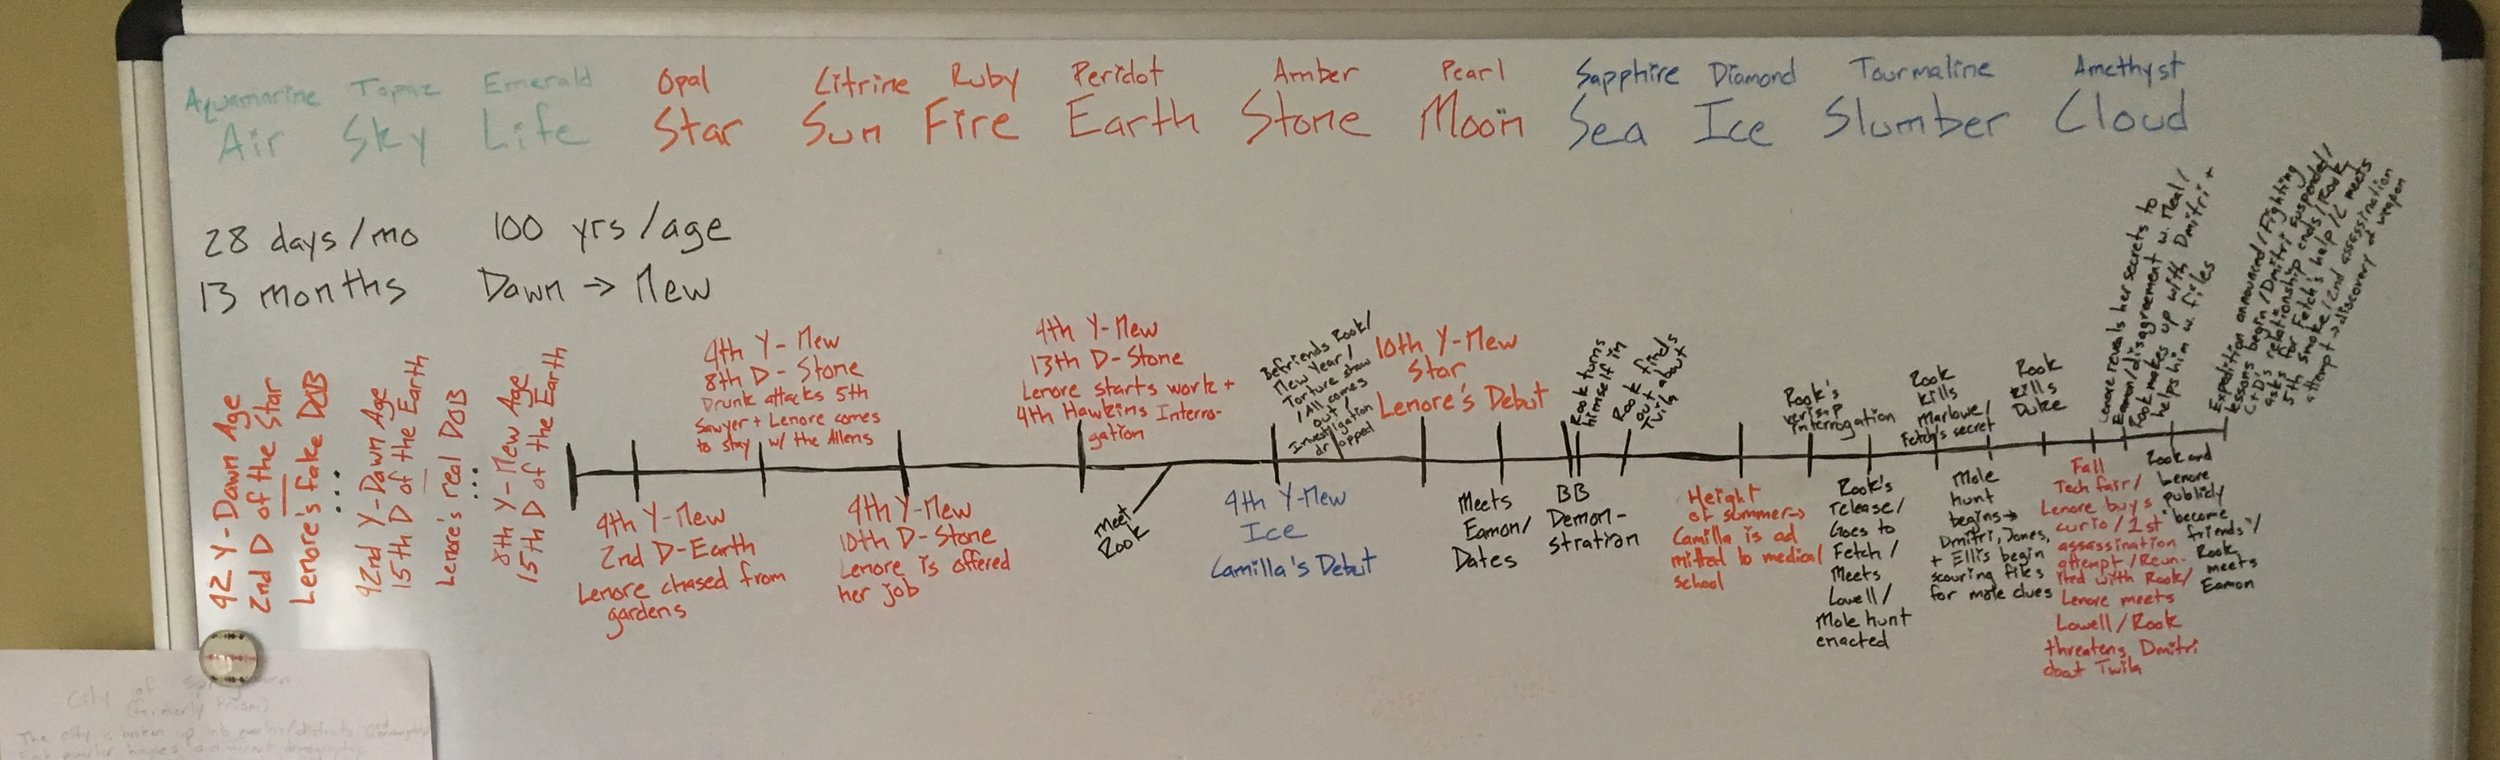 Aquamarine Topaz Emerald Opal Citrine Ruby Peridot Amber Pearl Sapphire Diamond Tourmaline Amethyst
Air Sky Life Star Sun Fire Earth Stone Moon Sea Ice Slumber Cloud
28 days/mo 100 yrs/age
13 months Dawn → New
92 Y-Dawn Age
2nd D of the Star
Lenore's fake DOB
...
92nd Y-Dawn Age
15th D of the Earth
Lenore's real DOB
...
8th Y-New Age
15th D of the Earth
4th Y-New
2nd D-Earth
Lenore chased from
gardens
4th Y-New
8th D-Stone
Drunk attacks 5th
Sawyer + Lenore comes
to stay w/ the Allens
4th Y-New
10th D-Stone
Lenore is offered
her job
4th Y-New
13th D-Stone
Lenore starts work +
4th Hawkins Interro-
gation
Meet
Rook
4th Y-New
Ice
Camilla's Debut
Befriends Rook/
New Year/
Torture show
/All comes
out/
Investigation
dropped
10th Y-New
Star
Lenore's Debut
Meets
Eamon/
Dates
BB
Demon-
stration
Rook turns
himself in
Rook finds
out about
Twila
Height
of summer→
Camilla is ad
mitted to medical
school
Rook's
verisap
interrogation
Rook's
release/
Goes to
Fetch/
Meets
Lowell/
Mole hunt
enacted
Rook
kills
Marlowe/
Fetch's secret
Mole
hunt
begins→
Dmitri, Jones,
+ Ellis begin
scouring files
for mole clues
Rook
kills
Duke
Fall
Tech fair/
Lenore buys
curio/1st
assassination
attempt/Reun-
ited with Rook/
Lenore meets
Lowell/Rook
threatens Dmitri
about Twila
Lenore reveals her secrets to
Eamon/disagreement w. Neal/
Rook makes up with Dmitri +
helps him w. files
Rook and
Lenore
publicly
"become
friends"/
Rook
meets
Eamon
Expedition announced/Fighting
lessons begin/Dmitri suspended/
C+D's relationship ends/Rook
asks for Fetch's help/C meets
5th Smoke/2nd assassination
attempt→discovery of weapon
City of
(formerly Prism)
The city is broken up into quarters/districts